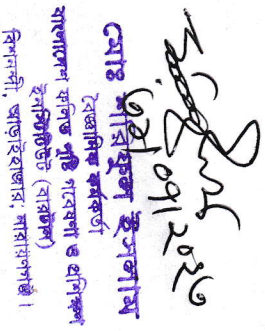 ০৭।২০২৩
মোঃ আরিফুল ইসলাম
বৈজ্ঞানিক কর্মকর্তা
বাংলাদেশ ফলিত পুষ্টি গবেষণা ও প্রশিক্ষণ
ইনস্টিটিউট (বারটান)
বিশনন্দী, আড়াইহাজার, নারায়ণগঞ্জ।